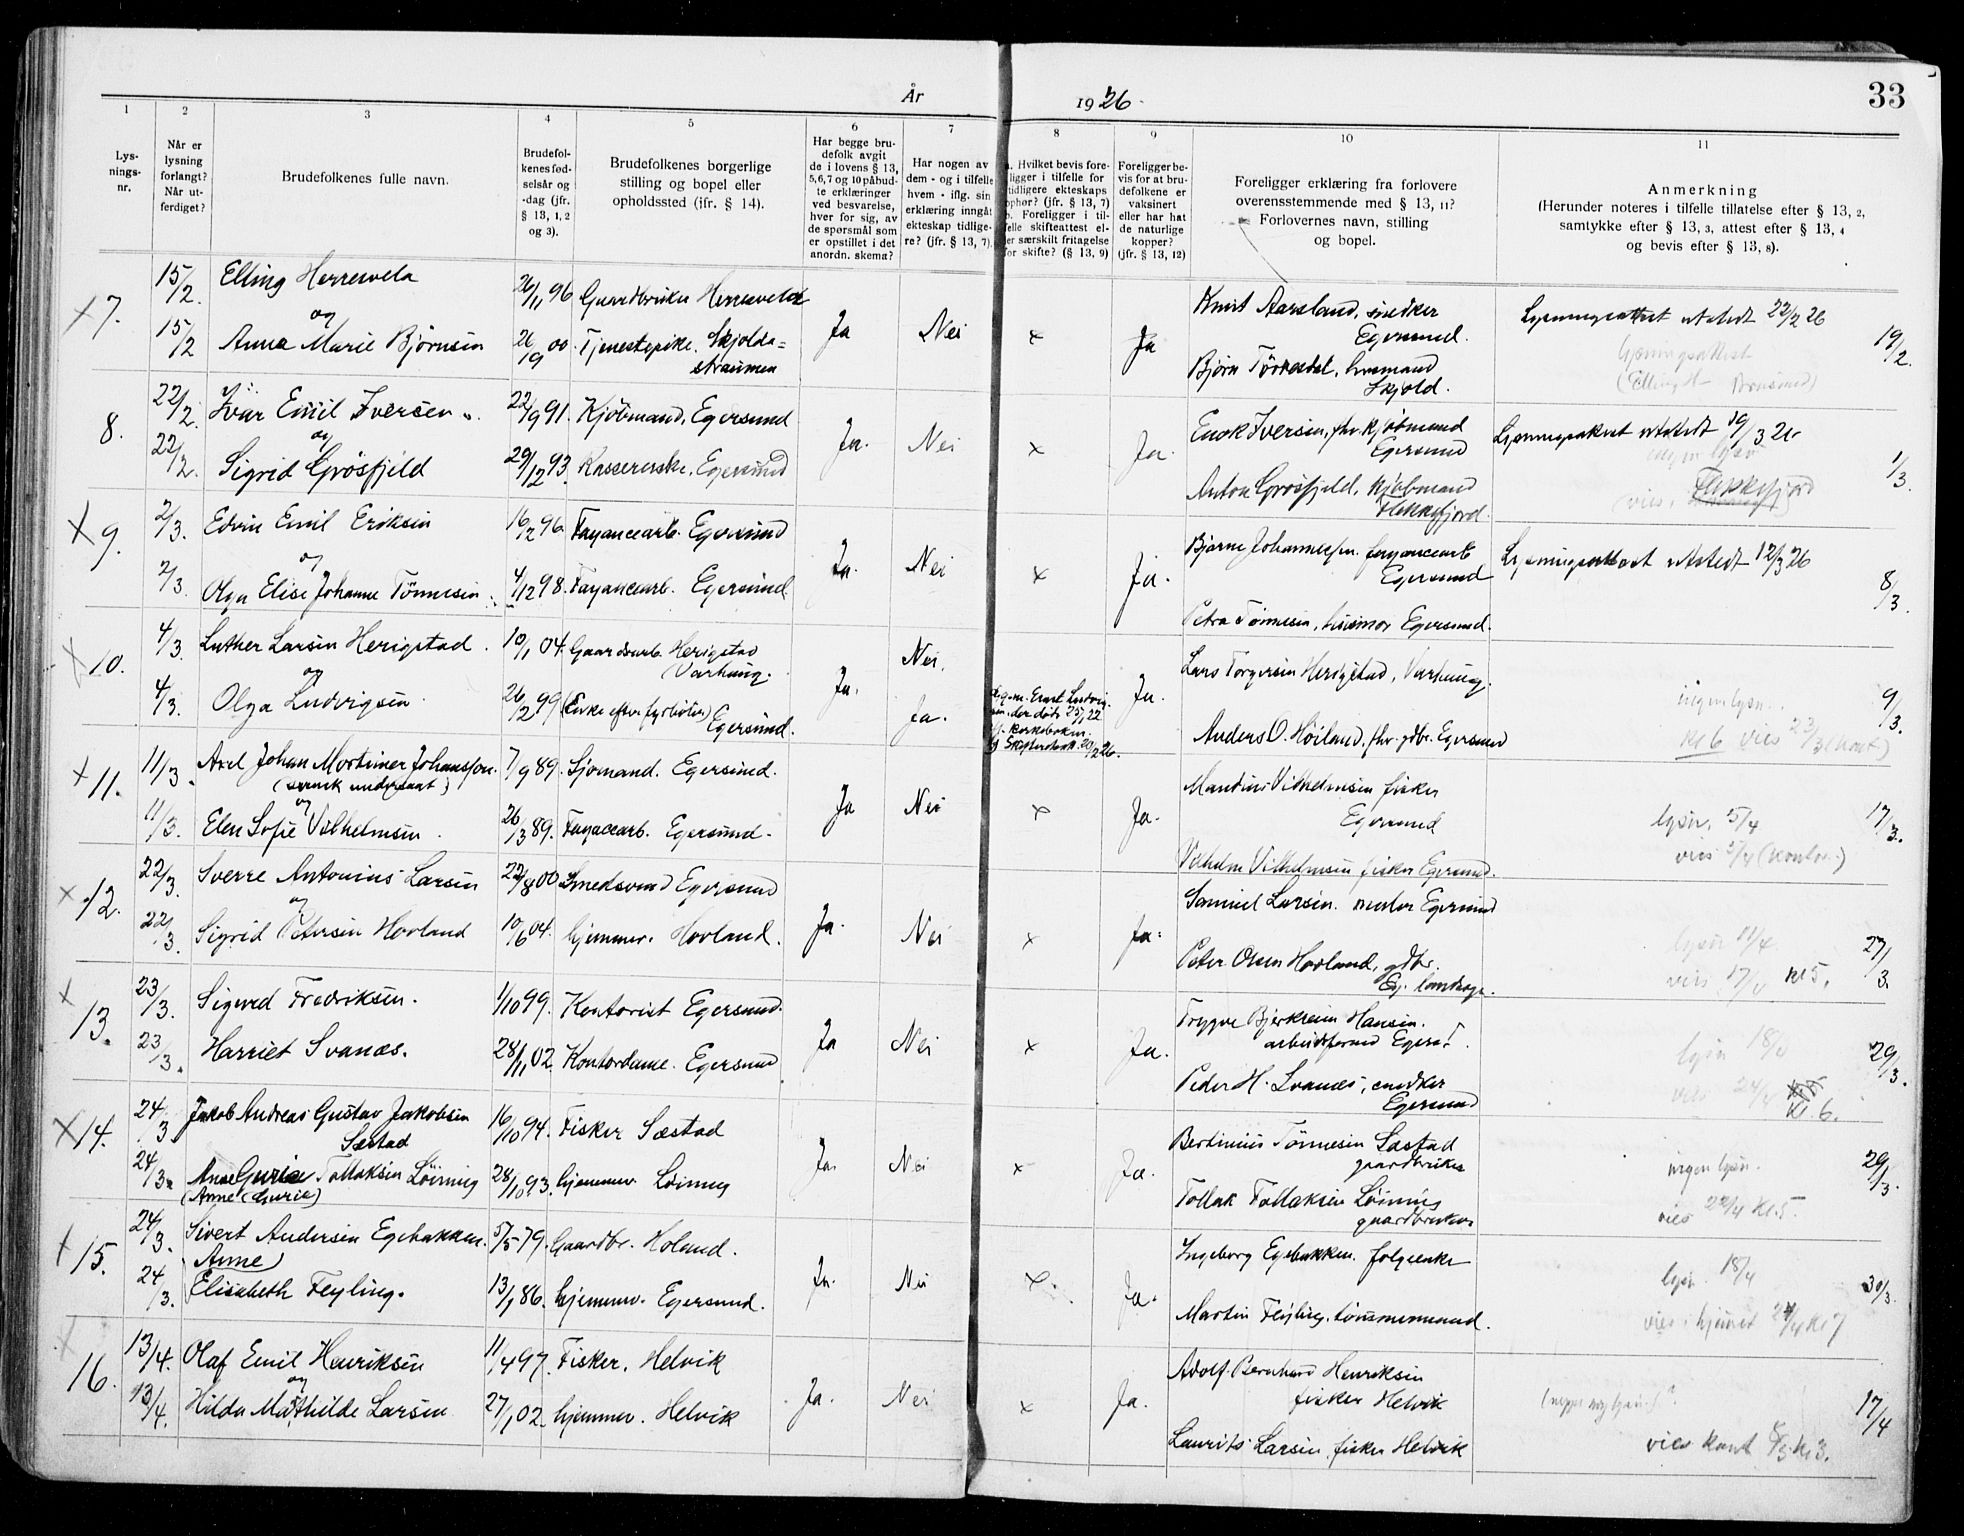 År 1926.
33
1 2 3 4 5 6 7 8 9 10 11
Lys-
nings-
nr.
Når er
lysning
forlangt?
Når ut-
ferdiget?
Brudefolkenes fulle navn.
Brudefol-
kenes fød-
selsår og
-dag (jfr.
§ 13, 1, 2
og 3).
Brudefolkenes borgerlige
stilling og bopel eller
opholdssted (jfr. § 14).
Har begge bru-
defolk avgit
de i lovens § 13,
5,6,7 og 10 påbud-
te erklæringer
ved besvarelse,
hver for sig, av
de spørsmål som
er opstillet i det
anordn. skema?
Har nogen av
dem - og i tilfelle
hvem - iflg. sin
erklæring inngåt
ekteskap tidlige-
re? (jfr. § 13, 7).
a. Hvilket bevis fore-
ligger i tilfelle for
tidligere ekteskaps
ophør? (jfr. § 13, 7)
b. Foreligger i til-
felle skifteattest el-
ler særskilt fritagelse
for skifte? (§ 13, 9)
Foreligger be-
vis for at bru-
defolkene er
vaksinert
eller har hat
de naturlige
kopper?
(jfr. § 13, 12)
Foreligger erklæring fra forlovere
overensstemmende med § 13, 11?
Forlovernes navn, stilling
og bopel.
Anmerkning
(Herunder noteres i tilfelle tillatelse efter § 13, 2,
samtykke efter § 13, 3, attest efter § 13, 4
og bevis efter § 13, 8).
x 7. 15/2. Elling Herresvela 26/11 96 Gaardbruker Herresvela
og
15/2 Anna Marie Björnsen 26/9 00. Tjenestepike. Skjolda=
straumen
Ja Nei x Ja
Knut Aarsland, snedker
Egersund.
Björn Törresdal, husmand
Skjold.
Lysningsattest utstedt 22/2 26
lysningsattest
19/2.
8. 22/2. Ivar Emil Iversen 22/9 91. Kjöbmand, Egersund
og
22/2. Sigrid Grösfjeld 29/12 93. Kassererske. Egersund
Ja. Nei x Ja.
Enok Iversen, fhv. kjöbmand
Egersund
Anton Grösfjeld, kjöbmand
Flekkefjord.
Lysningsattest utstedt 19/3 26
ingen lysn
(vies, Flekkefjord)
1/3.
x 9. 2/3. Edvin Emil Eriksen 16/2 96. Fayancearb. Egersund
og
2/3. Olga Elise Johanne Tönnesen 4/12 98. Fayancearb. Egersund.
Ja. Nei x Ja.
Bjarne Johannessen fayancearb
Egersund
Petra Tönnesen, husmor Egersund.
Lysningsattest utstedt 12/3 26
8/3.
x 10. 4/3. Luther Larsen Herigstad. 10/1 04. Gaardsarb. Herigstad
Varhaug.
og
4/3. Olga Ludvigsen. 26/2 99 (Enke efter fyrböter) Egersund.
Nei.
Ja. Ja. Ja.
Ernst Ludvig-
sen, der döde 25/7 22
kirkeboken
Skifteattest. 20/2 26.
Lars Torgersen Herigstad, Varhaug.
Anders O. Höiland, fhv. gdbr. Egersund
ingen lysn.
kl 6 vies 23/3 (kont)
9/3.
x 11. 11/3. Axel Johan Mortimer Johansson.
(svensk undersaat)
7/9 89. Sjömand. Egersund.
og
11/3. Elen Sofie Vilhelmsen. 26/3 89. Fayacearb. Egersund.
Ja Nei x Ja.
Mandius Vilhelmsen fisker
Egersund
Vilhelm Vilhelmsen fisker Egersund.
lysn. 5/4
vies 5/4 (kontor.)
17/3.
x 12. 22/3. Sverre Antonius Larsen 22/8 00 Smedsvend Egersund
og
22/3. Sigrid Petersen Hovland 10/6 04. hjemmev. Hovland.
Ja. Nei x Ja.
Samuel Larsen. Egersund
Peter Olsen Hovland, gdbr.
Eg. landsogn.
lysn 11/4
vies 17/4 kl 5.
27/3.
x 13. 23/3. Sigurd Fredriksen. 1/10 99. Kontorist Egersund.
23/3. Harriet Svanæs. 28/11 02. Kontordame. Egersund
Ja Nei x Ja.
Trygve Bjerkreim Hansen.
arbeidsformd Egersd.
Peder H. Svanæs, snedker
Egersund
lysn 18/4
vies 24/4 kl. 6.
29/3.
x 14. 24/3 Jakob Andreas Gustav Jakobsen
Sæstad
16/10 94. Fisker Sæstad
24/3. Anne Gurie Tollaksen Löining
(Anne Gurie)
28/10 93. hjemmev. Löining
Ja. Nei x Ja.
Bertinius Tönnesen Sæstad
gaardbruker
Tollak Tollaksen Löining
gaardbruker
ingen lysn.
vies 22/4 kl 5.
29/3.
x 15. 24/3. Sivert Andersen Egebakken. 5/5 79. Gaardbr. Holand.
Anne
24/3. Elisabeth Feyling. 13/1 86. hjemmev. Egersund.
Ja. Nei x. Ja.
Ingeborg Egebakken. folgeenke
Martin Feyling, tömmermand.
lysn. 18/4
vies i hjemmet 24/4 kl 7
30/3.
x 16. 13/4. Olaf Emil Henriksen 11/4 97. Fisker. Helvik
og
13/4. Hilda Mathilde Larsen 27/1 02. hjemmev. Helvik
Ja. Nei x Ja.
Adolf Bernhard Henriksen
fisker Helvik
Laurits Larsen fisker Helvik
vies kont 8/5 kl 3.
17/4